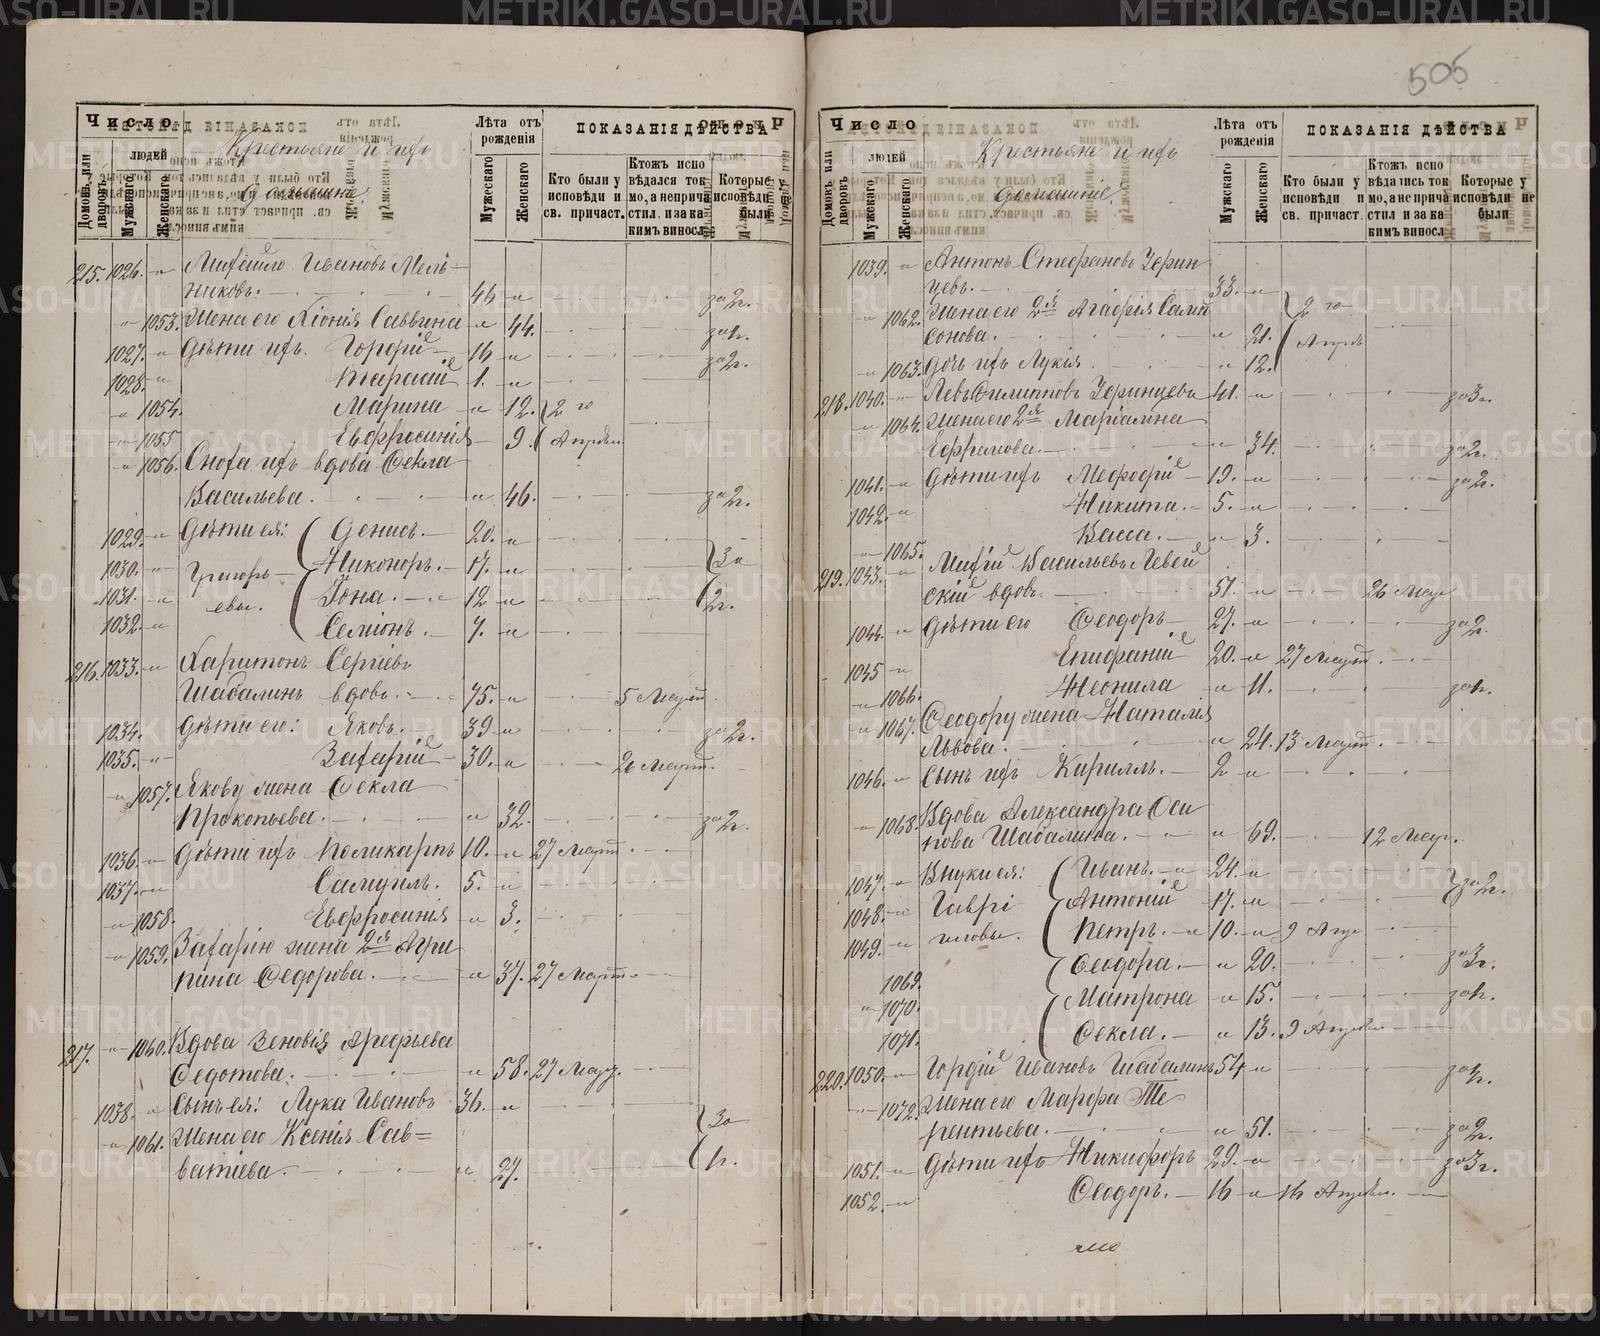 505
Число
людей
Домовъ или дворовъ
Мужескаго
Женскаго
Крестьяне и ихъ
домашніе
Лѣта отъ рожденія
Мужескаго
Женскаго
ПОКАЗАНІЯ ДѢЙСТВА
Кто были у исповѣди и св. причаст.
Ктожъ исповѣдался токмо, а не причастил. и за какимъ виносл.
Которые исповѣди были
215. 1026. Иванов Мельниковъ. 46 за 2г.
1053. Жена его Хіонія Саввина 44. за 1г.
1027. Дѣти ихъ. 16 за 2г.
1028. Тарасій 1.
1054. Марина 12. 2 го
1055 Евфросинія 9. Апрѣл.
1056. Сноха ихъ вдова Ѳекла
Васильева. 46. за 2г.
1029. Дѣти ея: Денисъ. 20.
1030. Григорь- Никоноръ. 17. За
1031. евы. Іона. 12 2г.
1032. Семіонъ. 7.
216. 1033. Харитонъ Сергіевъ
Шабалинъ вдовъ. 75. 5 Март.
1034. Дѣти его: Яковъ. 39 за 2г.
1035. Захарій 30. 26 Март.
1057. Якову жена Ѳекла
Прокопьева. 32. за 2г.
1036. Дѣти ихъ Поликарпъ 10. 27 Март.
1037. Самуилъ. 5.
1058. Евфросинія 3.
1059. Захарію жена 2я Агрипина Ѳедорова. 37. 27 Март.
217. 1060. Вдова Зеновія Арефьева
Ѳедотова. 58. 27 Мар.
1038. Сынъ ея: Лука Ивановъ 36. За
1061. Жена его Ксенія Сав=
ватіева. 27. 1г.
Число
людей
Домовъ или дворовъ
Мужескаго
Женскаго
Крестьяне и ихъ
домашніе
Лѣта отъ рожденія
Мужескаго
Женскаго
ПОКАЗАНІЯ ДѢЙСТВА
Кто были у исповѣди и св. причаст.
Ктожъ исповѣдались токмо, а не причастил. и за какимъ виносл
Которые у исповѣди не были
1039. Антонъ Стефановъ Зерин
цевъ. 33.
1062. Жена его 2я Агафія Самсонова. 21. 2 го Апрѣ
1063. Дочь ихъ Лукія 12.
218. 1040. Левъ Филипповъ Зеринцевъ 41. за 3г.
1064. Жена его 2я Маріамна
Ефимова. 34. за 2г.
1041. Дѣти ихъ Мефодій 19. за 2г.
1042. Никита. 5.
1065. Васса. 3.
219. 1043. Васильевъ Левен
скій вдовъ. 51. 26 Мар
1044. Дѣти его Ѳеодоръ 27. за 2г.
1045 Епифаній 20. 27 Март.
1066. Неонила 11. за 1г.
1067. Ѳеодору жена Наталія
Львова. 24. 13 Март.
1046. Сынъ ихъ Кириллъ. 2
1068. Вдова Александра Оси
пова Шабалина. 69. 12 Мар.
1047. Внуки ея: Иванъ. 24. за 2г.
1048. Гаврі Антоній 17.
1049. иловы. Петръ. 10. 9 Апр
1069. Ѳеодора. 20. за 3г.
1070. Матрона 15. за 1г.
1071. Ѳекла. 13. 9 Апрѣл
220. 1050. Гордій Ивановъ Шабалинъ 54 за 1г.
1072. Жена его Марфа Те
рентьева. 51. за 2г.
1051. Дѣти ихъ Никифоръ 29. за 3г.
1052. Ѳеодоръ. 16 16 Апрѣл.
METRIKI.GASO-URAL.RU